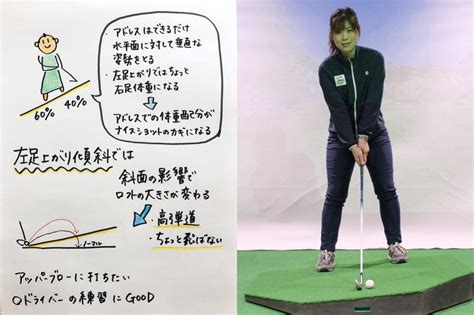 ・アドレスはできるだけ
水平面に対して垂直な
姿勢をとる
・左足上がりではちょっと
右足体重になる
アドレスでの体重配分が
ナイスショットのカギになる
60%
40%
左足上がり傾斜では
斜面の影響で
ロフトの大きさが変わる
・高弾道
・ちょっと飛ばない
ノーマル
アッパーブローに打ちたい
○ドライバーの練習にGOOD